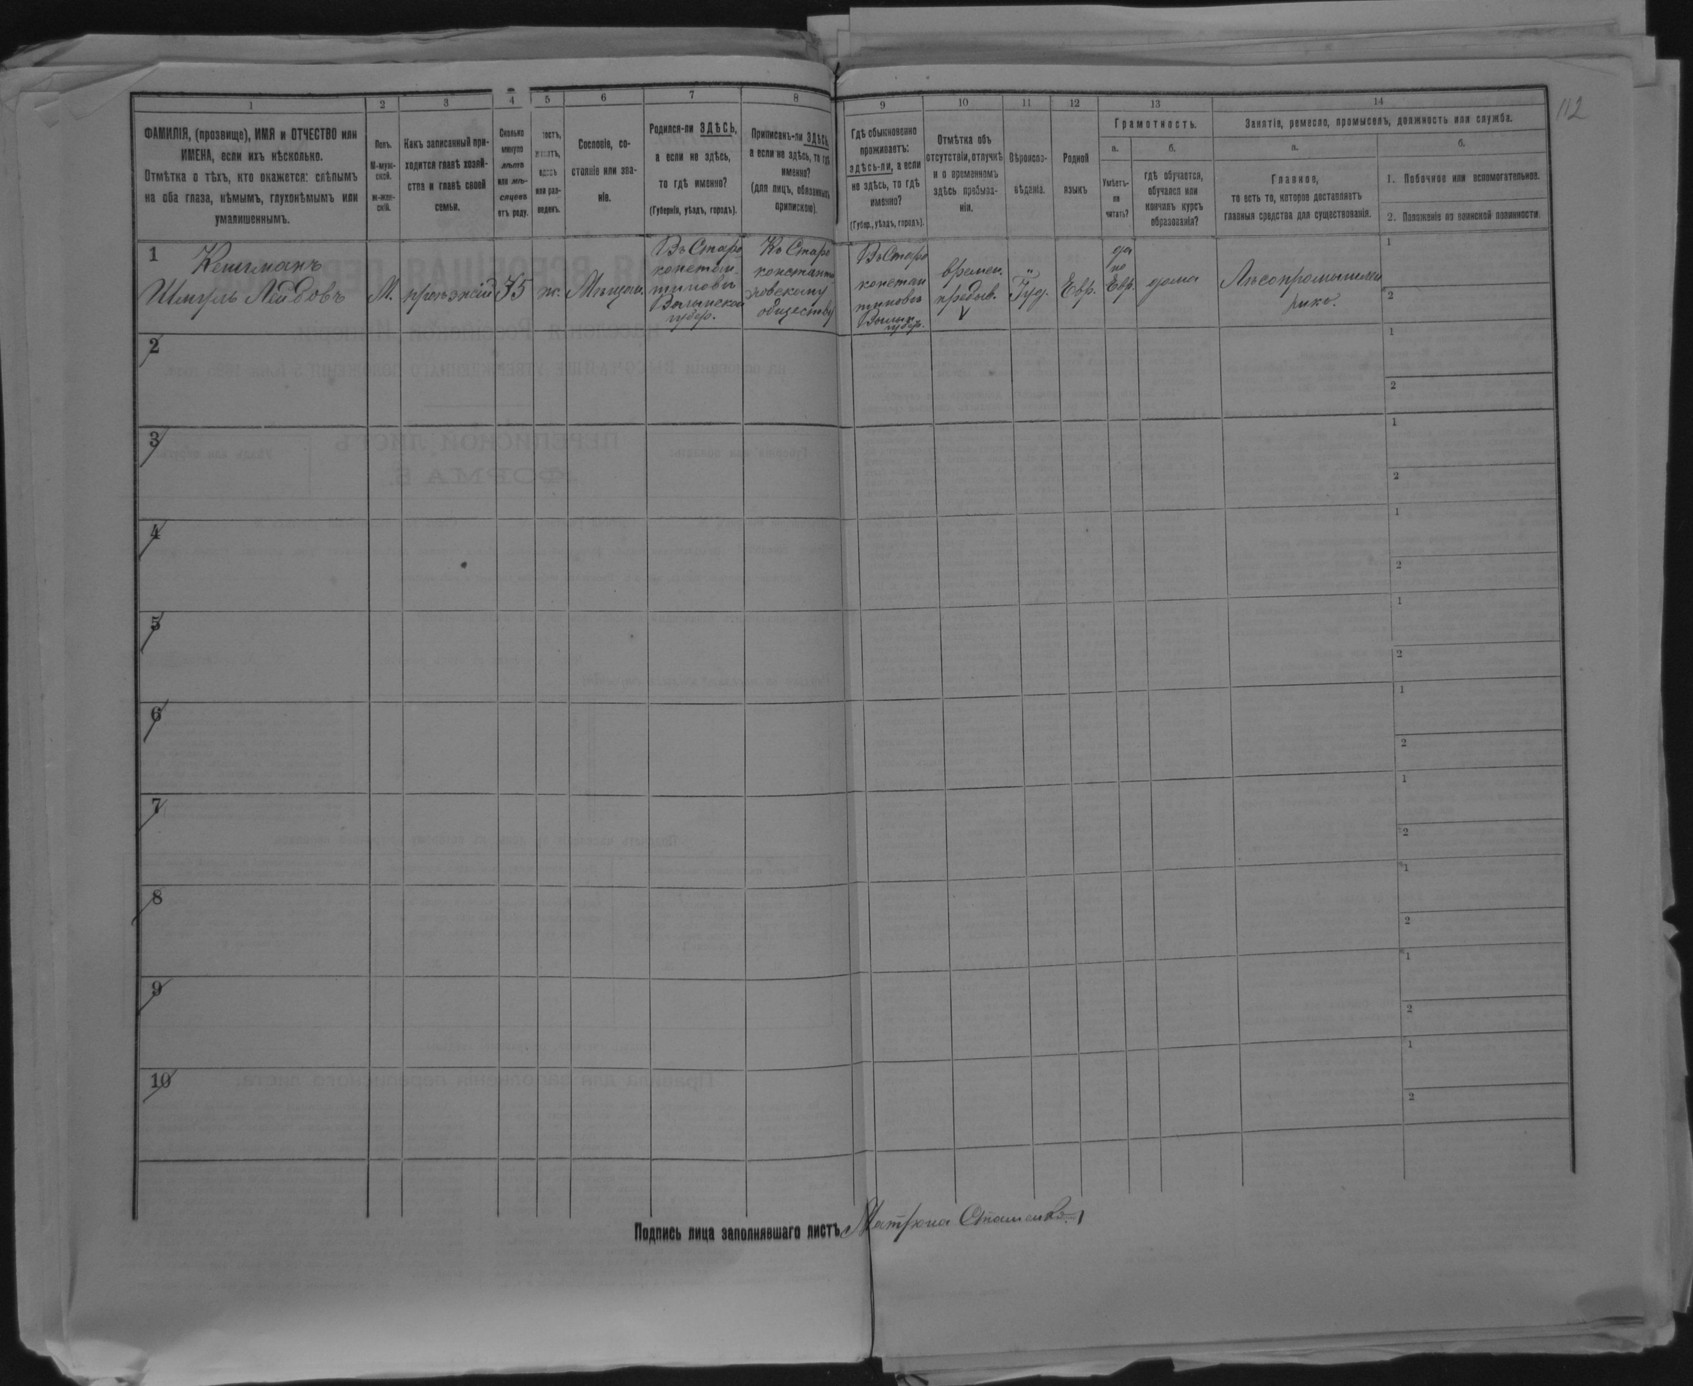 112
1 2 3 4 5 6 7 8 9 10 11 12 13 14
ФАМИЛІЯ, (прозвище), ИМЯ и ОТЧЕСТВО или
ИМЕНА, если ихъ нѣсколько.
Отмѣтка о тѣхъ, кто окажется: слѣпымъ
на оба глаза, нѣмымъ, глухонѣмымъ или
умалишеннымъ.
Полъ.
М-муж-
ской.
ж-жен-
скій.
Какъ записанный при-
ходится главѣ хозяй-
ства и главѣ своей
семьи.
Сколько
минуло
лѣтъ
или мѣ-
сяцевъ
отъ роду.
Сословіе, со-
стояніе или зва-
ніе.
Родился-ли ЗДѢСЬ,
а если не здѣсь,
то гдѣ именно?
(Губернія, уѣздъ, городъ).
Приписанъ-ли ЗДѢСЬ,
а если не здѣсь, то гдѣ
именно?
(для лицъ, обязанныхъ
припискою).
Гдѣ обыкновенно
проживаетъ:
здѣсь-ли, а если
не здѣсь, то гдѣ
именно?
(Губер., уѣздъ, городъ).
Отмѣтка объ
отсутствіи, отлучкѣ
и о временномъ
здѣсь пребыва-
ніи.
Вѣроиспо-
вѣданіе.
Родной
языкъ
Грамотность.
а.
Умѣетъ-
ли
читать?
б.
гдѣ обучается,
обучался или
кончилъ курсъ
образованія?
Занятія, ремесло, промыселъ, должность или служба.
а.
Главное,
то есть то, которое доставляетъ
главныя средства для существованія.
б.
1. Побочное или вспомогательное.
2. Положеніе по воинской повинности.
1
Шмуль Лейбовъ
М.
пріѣзжій
ж.
Мѣщан.
Въ Старо
констан-
тиновѣ
Волынской
губер.
Къ Старо
констант
новскому
обществу
Въ Старо
констан
тиновѣ
Волын.
губер.
времен.
пребыв.
Іуд.
Евр.
да
по
Евр.
дома
Лѣсопромышлен
никъ.
1
2
2
1
2
3
1
2
4
1
2
5
1
2
6
1
2
7
1
2
8
1
2
9
1
2
10
1
2
Подпись лица заполнявшаго листъ